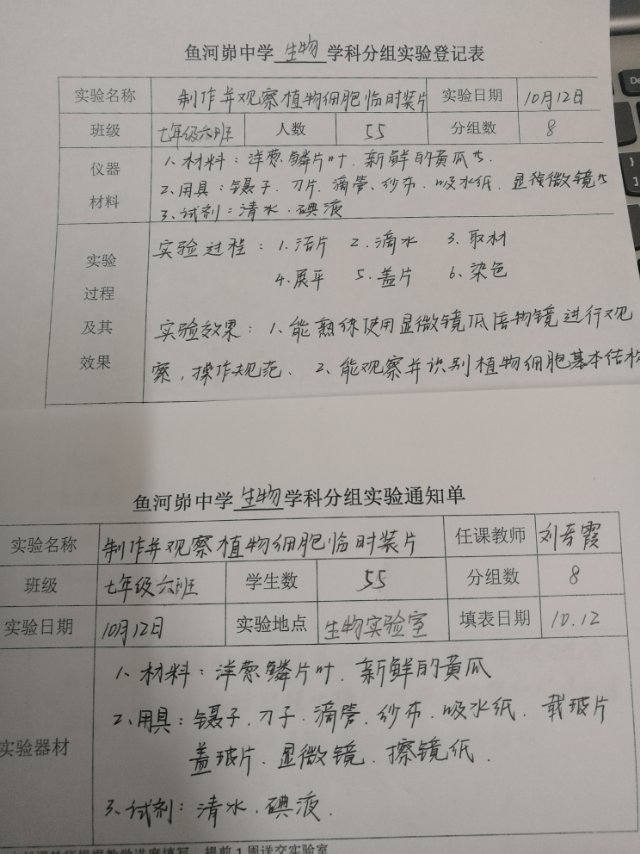 鱼河峁中学 生物 学科分组实验登记表
实验名称 制作并观察植物细胞临时装片 实验日期 10月12日
班级 七年级六班 人数 55 分组数 8
仪器材料 1、材料：洋葱鳞片叶、新鲜的黄瓜
2、用具：镊子、刀片、滴管、纱布、吸水纸、显微镜
3、试剂：清水、碘液
实验过程及其效果 实验过程：1.洁片 2.滴水 3.取材
4.展平 5.盖片 6.染色
实验效果：1、能熟练使用显微镜低倍物镜进行观
察，操作规范、 2、能观察并识别植物细胞基本结构
鱼河峁中学 生物 学科分组实验通知单
实验名称 制作并观察植物细胞临时装片 任课教师 刘霞
班级 七年级六班 学生数 55 分组数 8
实验日期 10月12日 实验地点 生物实验室 填表日期 10.12
实验器材 1、材料：洋葱鳞片叶、新鲜的黄瓜
2、用具：镊子、刀子、滴管、纱布、吸水纸、载玻片
盖玻片、显微镜、擦镜纸、
3、试剂：清水、碘液、
提前1周送交实验室